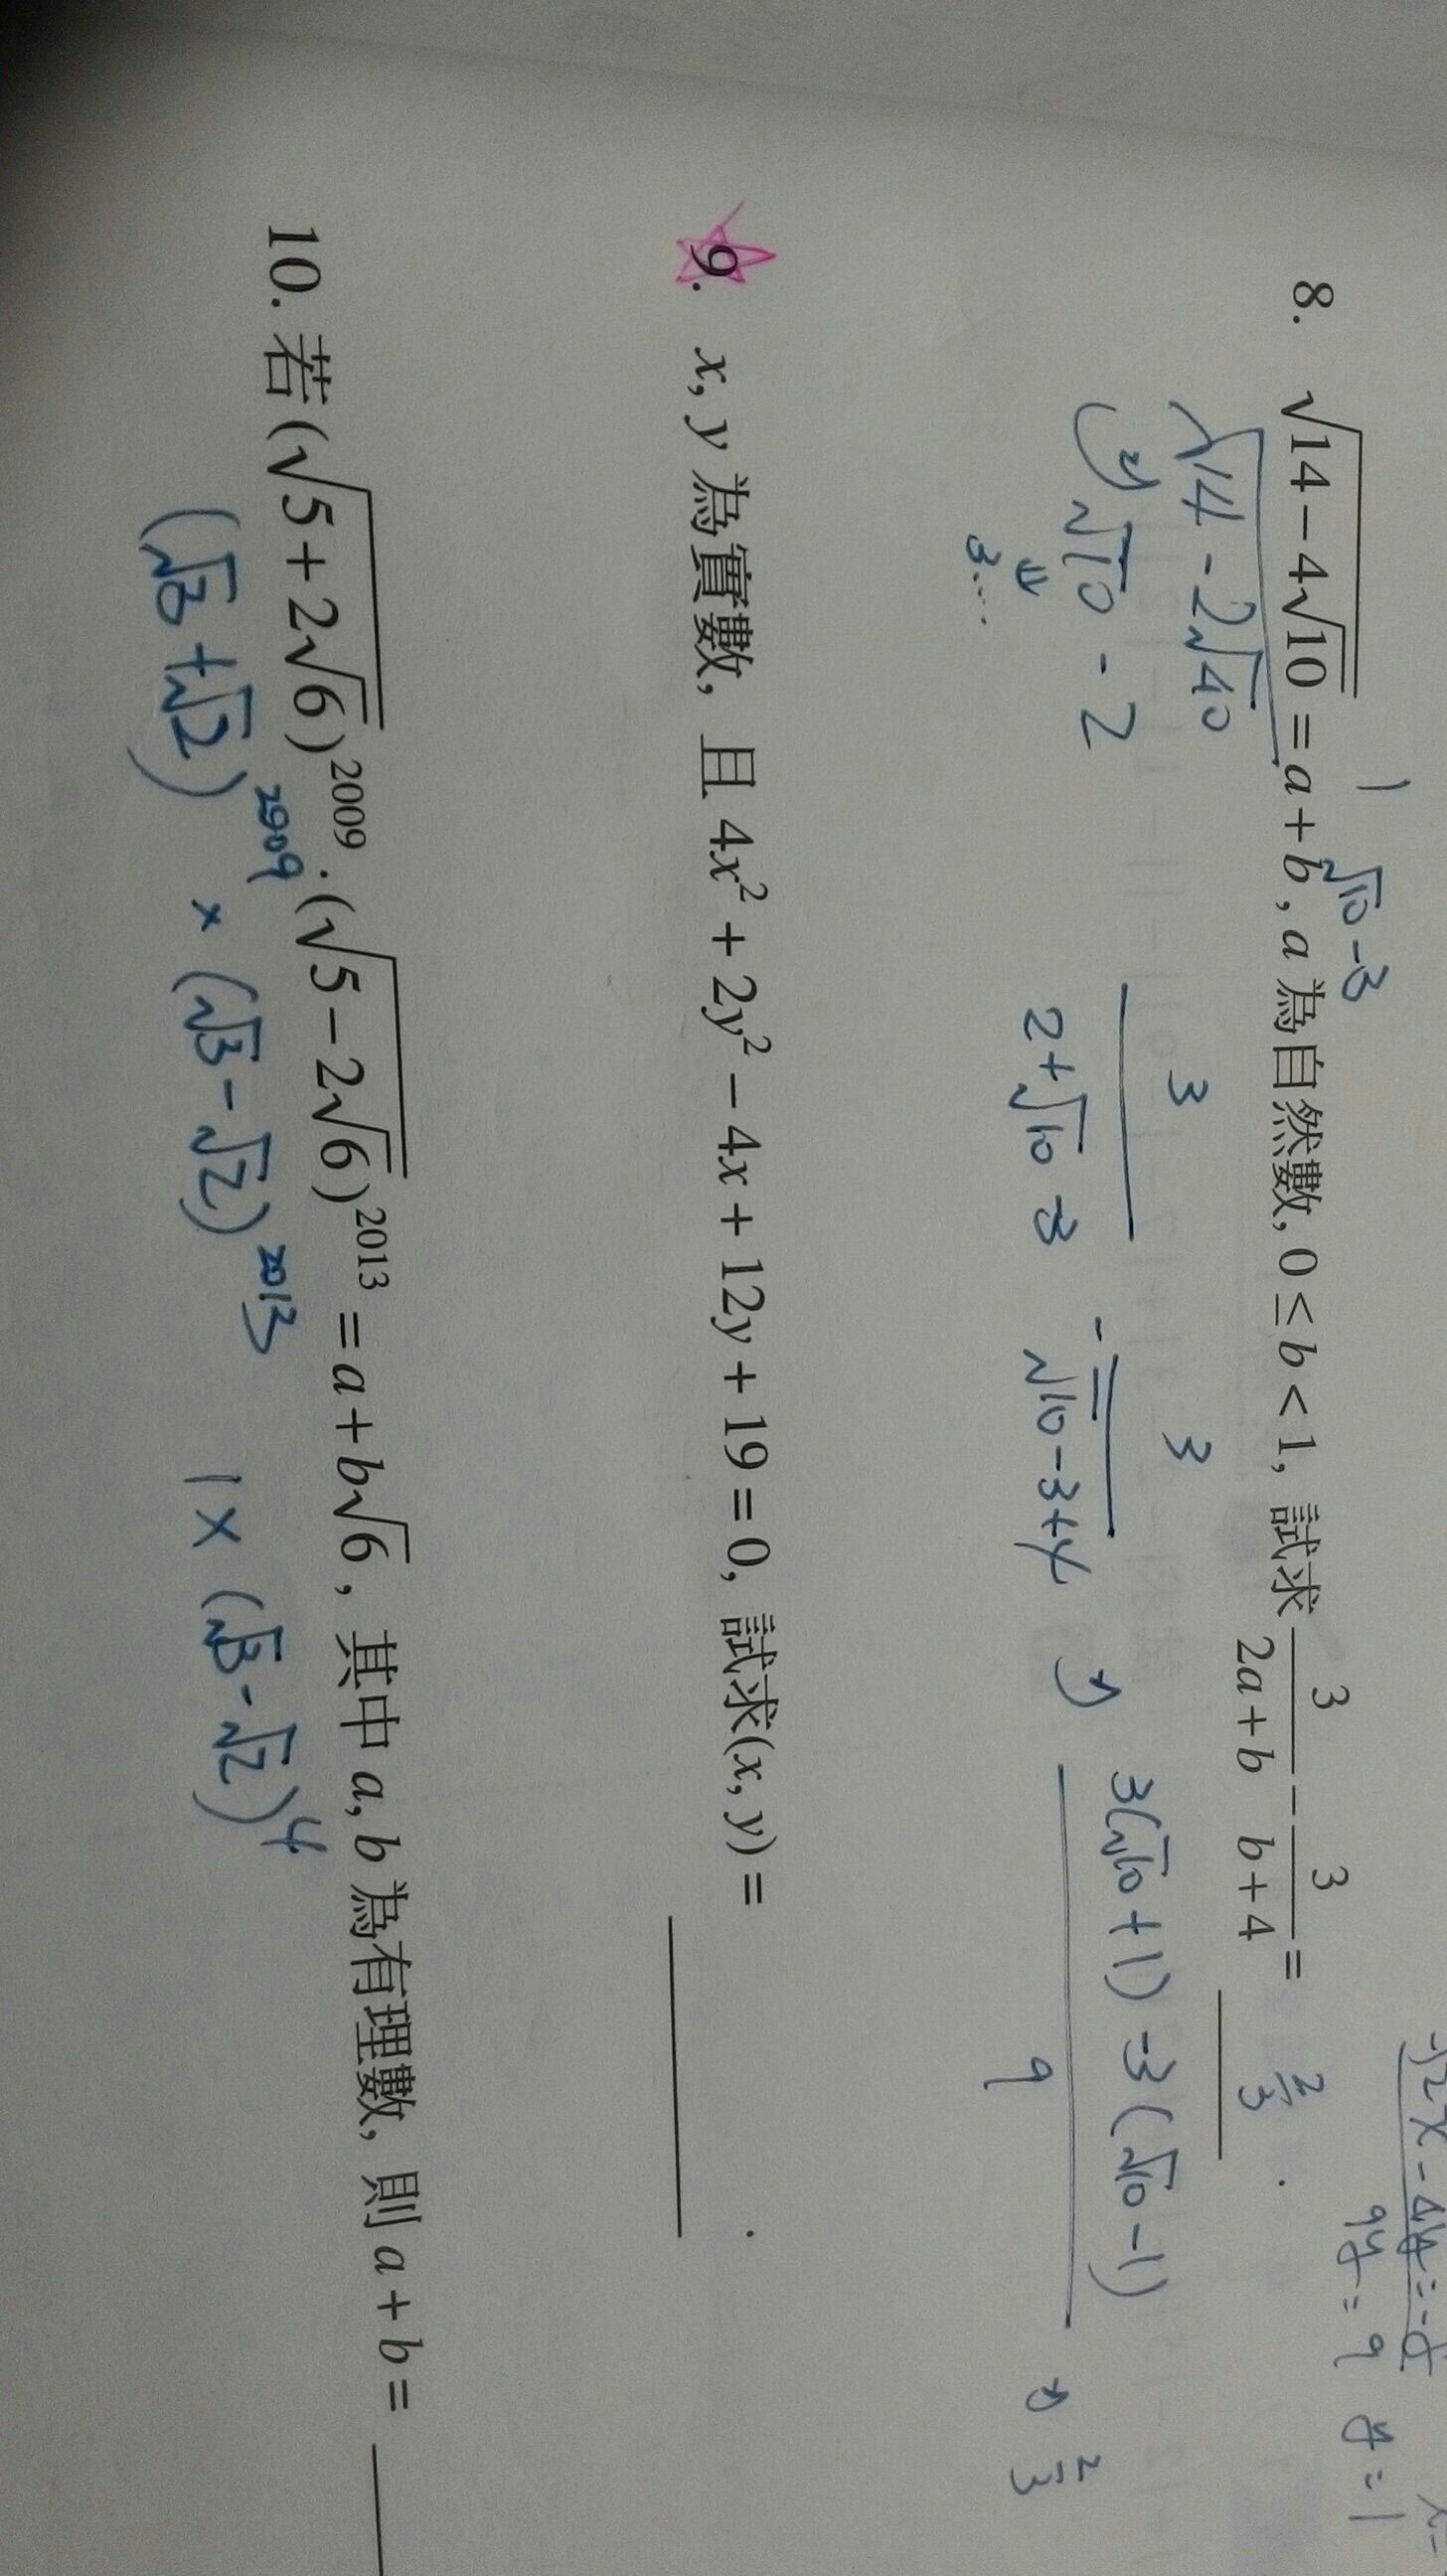 -12x-4y=-5
9y=9 y=1
1 √10-3
8. √(14-4√10) = a+b, a 為自然數, 0≤b<1, 試求 3/(2a+b) - 3/(b+4) = 2/3 .
√(14-2√40)
⇒ √10-2
⇓
3...
3/(2+√10-3) - 3/(√10-3+4) ⇒ (3(√10+1)-3(√10-1))/9 ⇒ 2/3
9. x, y 為實數, 且 4x²+2y²-4x+12y+19=0, 試求(x, y)= .
10. 若(√(5+2√6))²⁰⁰⁹·(√(5-2√6))²⁰¹³=a+b√6, 其中 a, b 為有理數, 則 a+b=
(√3+√2)²⁰⁰⁹ × (√3-√2)²⁰¹³ 1×(√3-√2)⁴